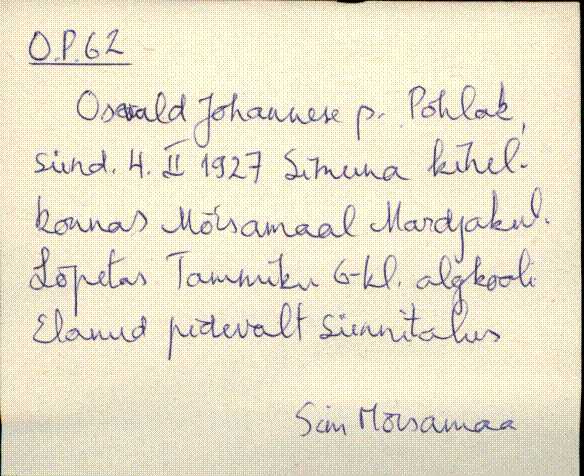 O.P.62
Oswald Johannese p. Pohlak,
sünd. 4. II 1927 Simuna kihel-
konnas Mõisamaal Mardjakul.
Lõpetas Tammiku 6-kl. algkooli
Elanud pidevalt sünnitalus
Sim Mõisamaa